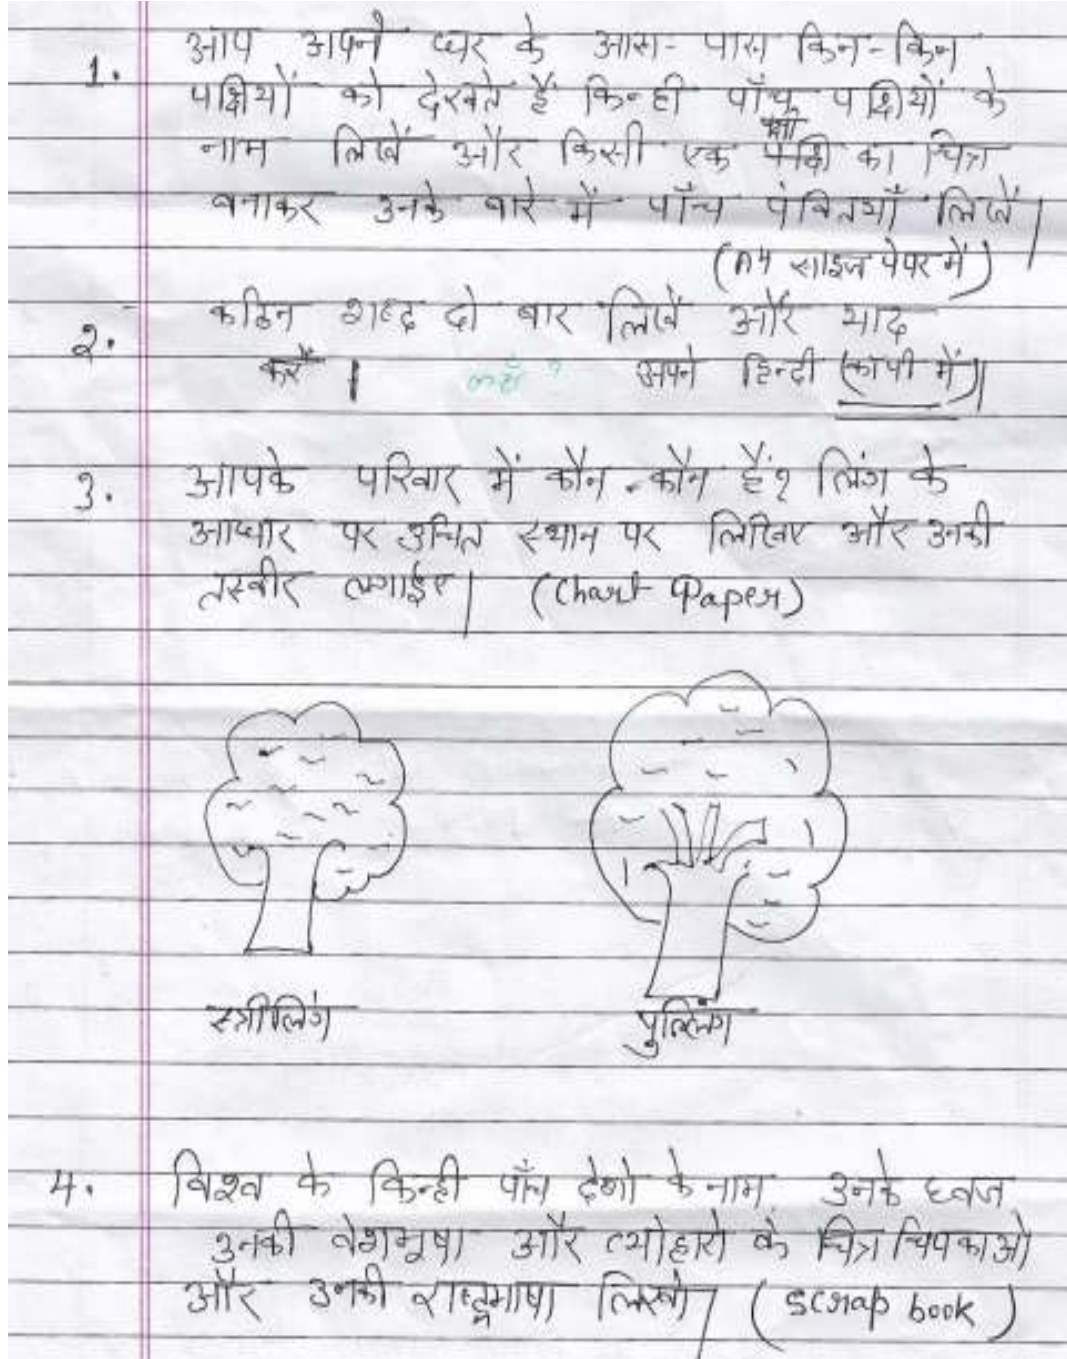 1. आप अपने घर के आस-पास किन-किन
पक्षियों को देखते हैं किन्ही पाँच पक्षियों के
नाम लिखें और किसी एक पक्षी का चित्र
बनाकर उनके बारे में पाँच पंक्तियाँ लिखें।
(A4 साइज पेपर में)
2. कठिन शब्द दो बार लिखें और याद
करें। कहाँ? अपने हिन्दी (कॉपी में)।
3. आपके परिवार में कौन-कौन हैं? लिंग के
आधार पर उचित स्थान पर लिखिए और उनकी
तस्वीर लगाईए। (Chart Paper)
स्त्रीलिंग पुल्लिंग
4. विश्व के किन्ही पाँच देशो के नाम उनके ध्वज
उनकी वेशभूषा और त्योहारो के चित्र चिपकाओ
और उनकी राष्ट्रभाषा लिखो। (scrap book)